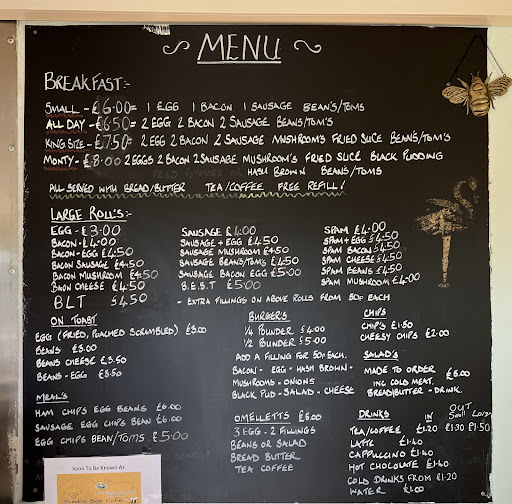 MENU
BREAKFAST:-
SMALL - £6.00 = 1 EGG 1 BACON 1 SAUSAGE BEANS/TOMS
ALL DAY - £6.50 = 2 EGG 2 BACON 2 SAUSAGE BEANS/TOM'S
KING SIZE - £7.50 = 2 EGG 2 BACON 2 SAUSAGE MUSHROOM'S FRIED SLICE BEANS/TOM'S
MONTY - £8.00 2 EGGS 2 BACON 2 SAUSAGE MUSHROOM'S FRIED SLICE BLACK PUDDING
HASH BROWN BEANS/TOMS
ALL SERVED WITH BREAD/BUTTER TEA/COFFEE FREE REFILL!
LARGE ROLL'S:-
EGG - £3.00
BACON - £4.00
BACON - EGG £4.50
BACON SAUSAGE £4.50
BACON MUSHROOM £4.50
BACON CHEESE £4.50
BLT £4.50
SAUSAGE £4.00
SAUSAGE + EGG £4.50
SAUSAGE MUSHROOM £4.50
SAUSAGE BEANS/TOMS £4.50
SAUSAGE BACON EGG £5.00
B.E.S.T £5.00
- EXTRA FILLINGS ON ABOVE ROLLS FROM 50P EACH
SPAM £4.00
SPAM + EGG £4.50
SPAM BACON £4.50
SPAM CHEESE £4.50
SPAM BEANS £4.50
SPAM MUSHROOM £4.00
ON TOAST
EGG (FRIED, POACHED SCRAMBLED) £3.00
BEANS £3.00
BEANS CHEESE £3.50
BEANS - EGG £3.50
MEAL'S
HAM CHIPS EGG BEANS £6.00
SAUSAGE EGG CHIPS BEAN £6.00
EGG CHIPS BEAN/TOMS £5.00
BURGER'S
1/4 POUNDER £4.00
1/2 POUNDER £5.00
ADD A FILLING FOR 50P EACH.
BACON - EGG - HASH BROWN -
MUSHROOMS - ONIONS
BLACK PUD - SALAD - CHEESE
OMELETTS £6.00
3 EGG - 2 FILLINGS
BEANS OR SALAD
BREAD BUTTER
TEA COFFEE
CHIPS
CHIP'S £1.50
CHEESY CHIPS £2.00
SALAD'S
MADE TO ORDER £6.00
INC COLD MEAT.
BREAD/BUTTER - DRINK.
DRINKS IN OUT
Small Large
TEA/COFFEE £1.20 £1.30 £1.50
LATTE £1.40
CAPPUCCINO £1.40
HOT CHOCOLATE £1.40
COLD DRINKS FROM £1.20
WATER £1.00
Soon To Be Known As
Bumble Bee Cafe